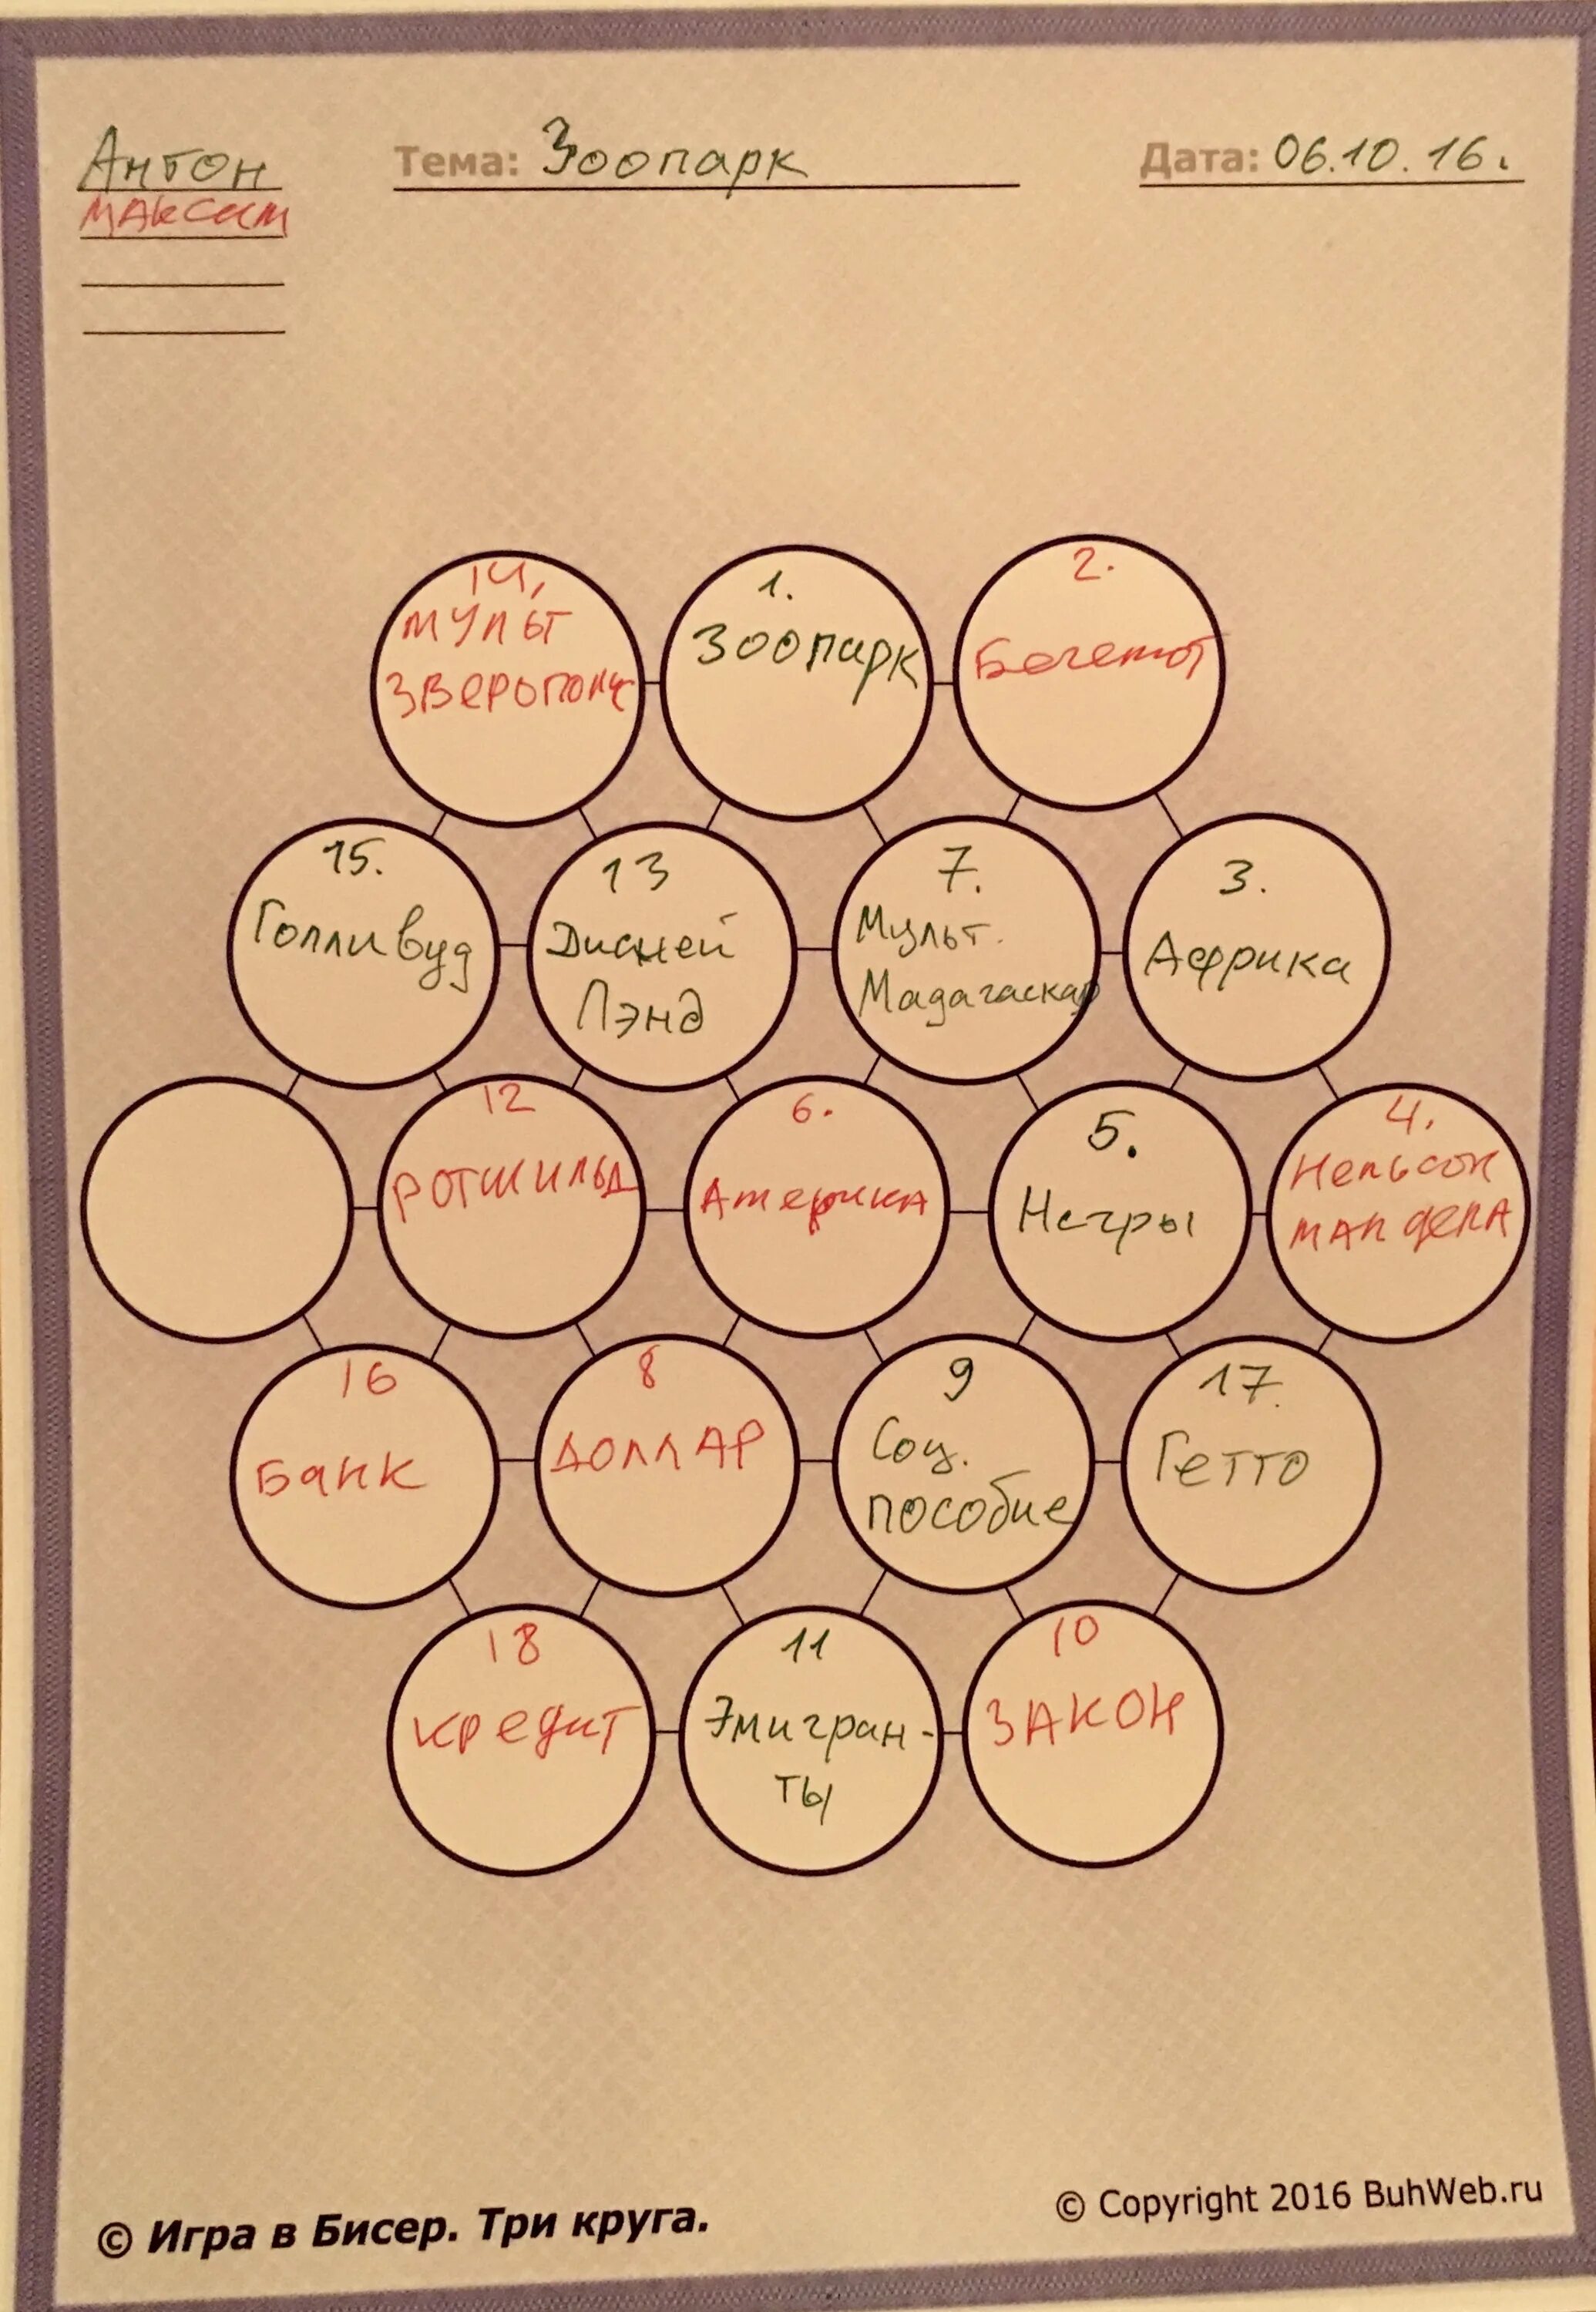 Антон
Максим
Тема: Зоопарк
Дата: 06.10.16.
14,
мульт
зверополис
1.
Зоопарк
2.
Бегемот
15.
Голливуд
13
Дисней
Лэнд
7.
Мульт.
Мадагаскар
3.
Африка
12
Ротшильд
6.
Америка
5.
Негры
4.
Нельсон
Мандела
16
Банк
8
Доллар
9
Соц.
пособие
17.
Гетто
18
кредит
11
Эмигран-
ты
10
ЗАКОН
© Игра в Бисер. Три круга.
© Copyright 2016 BuhWeb.ru